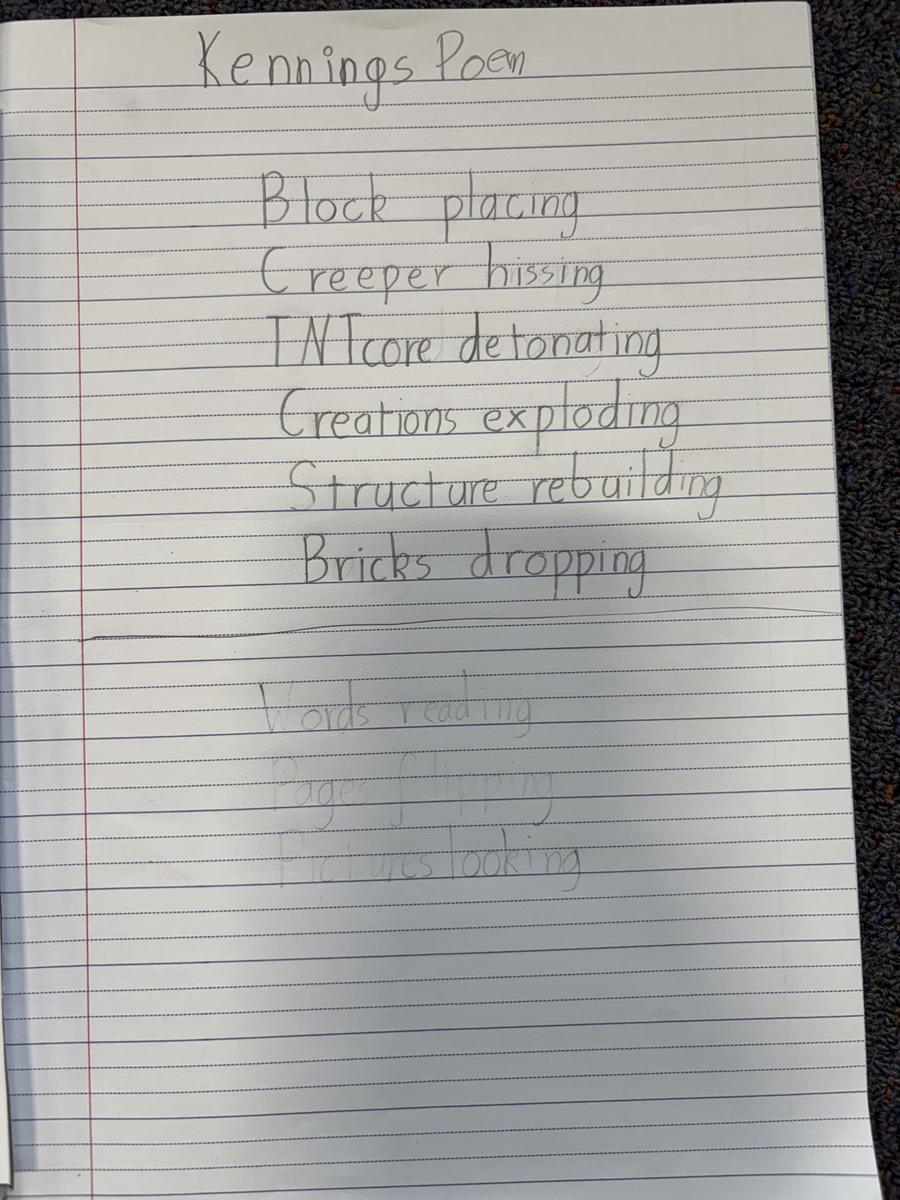 Kennings Poem
Block placing
Creeper hissing
TNTcore detonating
Creations exploding
Structure rebuilding
Bricks dropping
Words reading
Pages flipping
Pictures looking